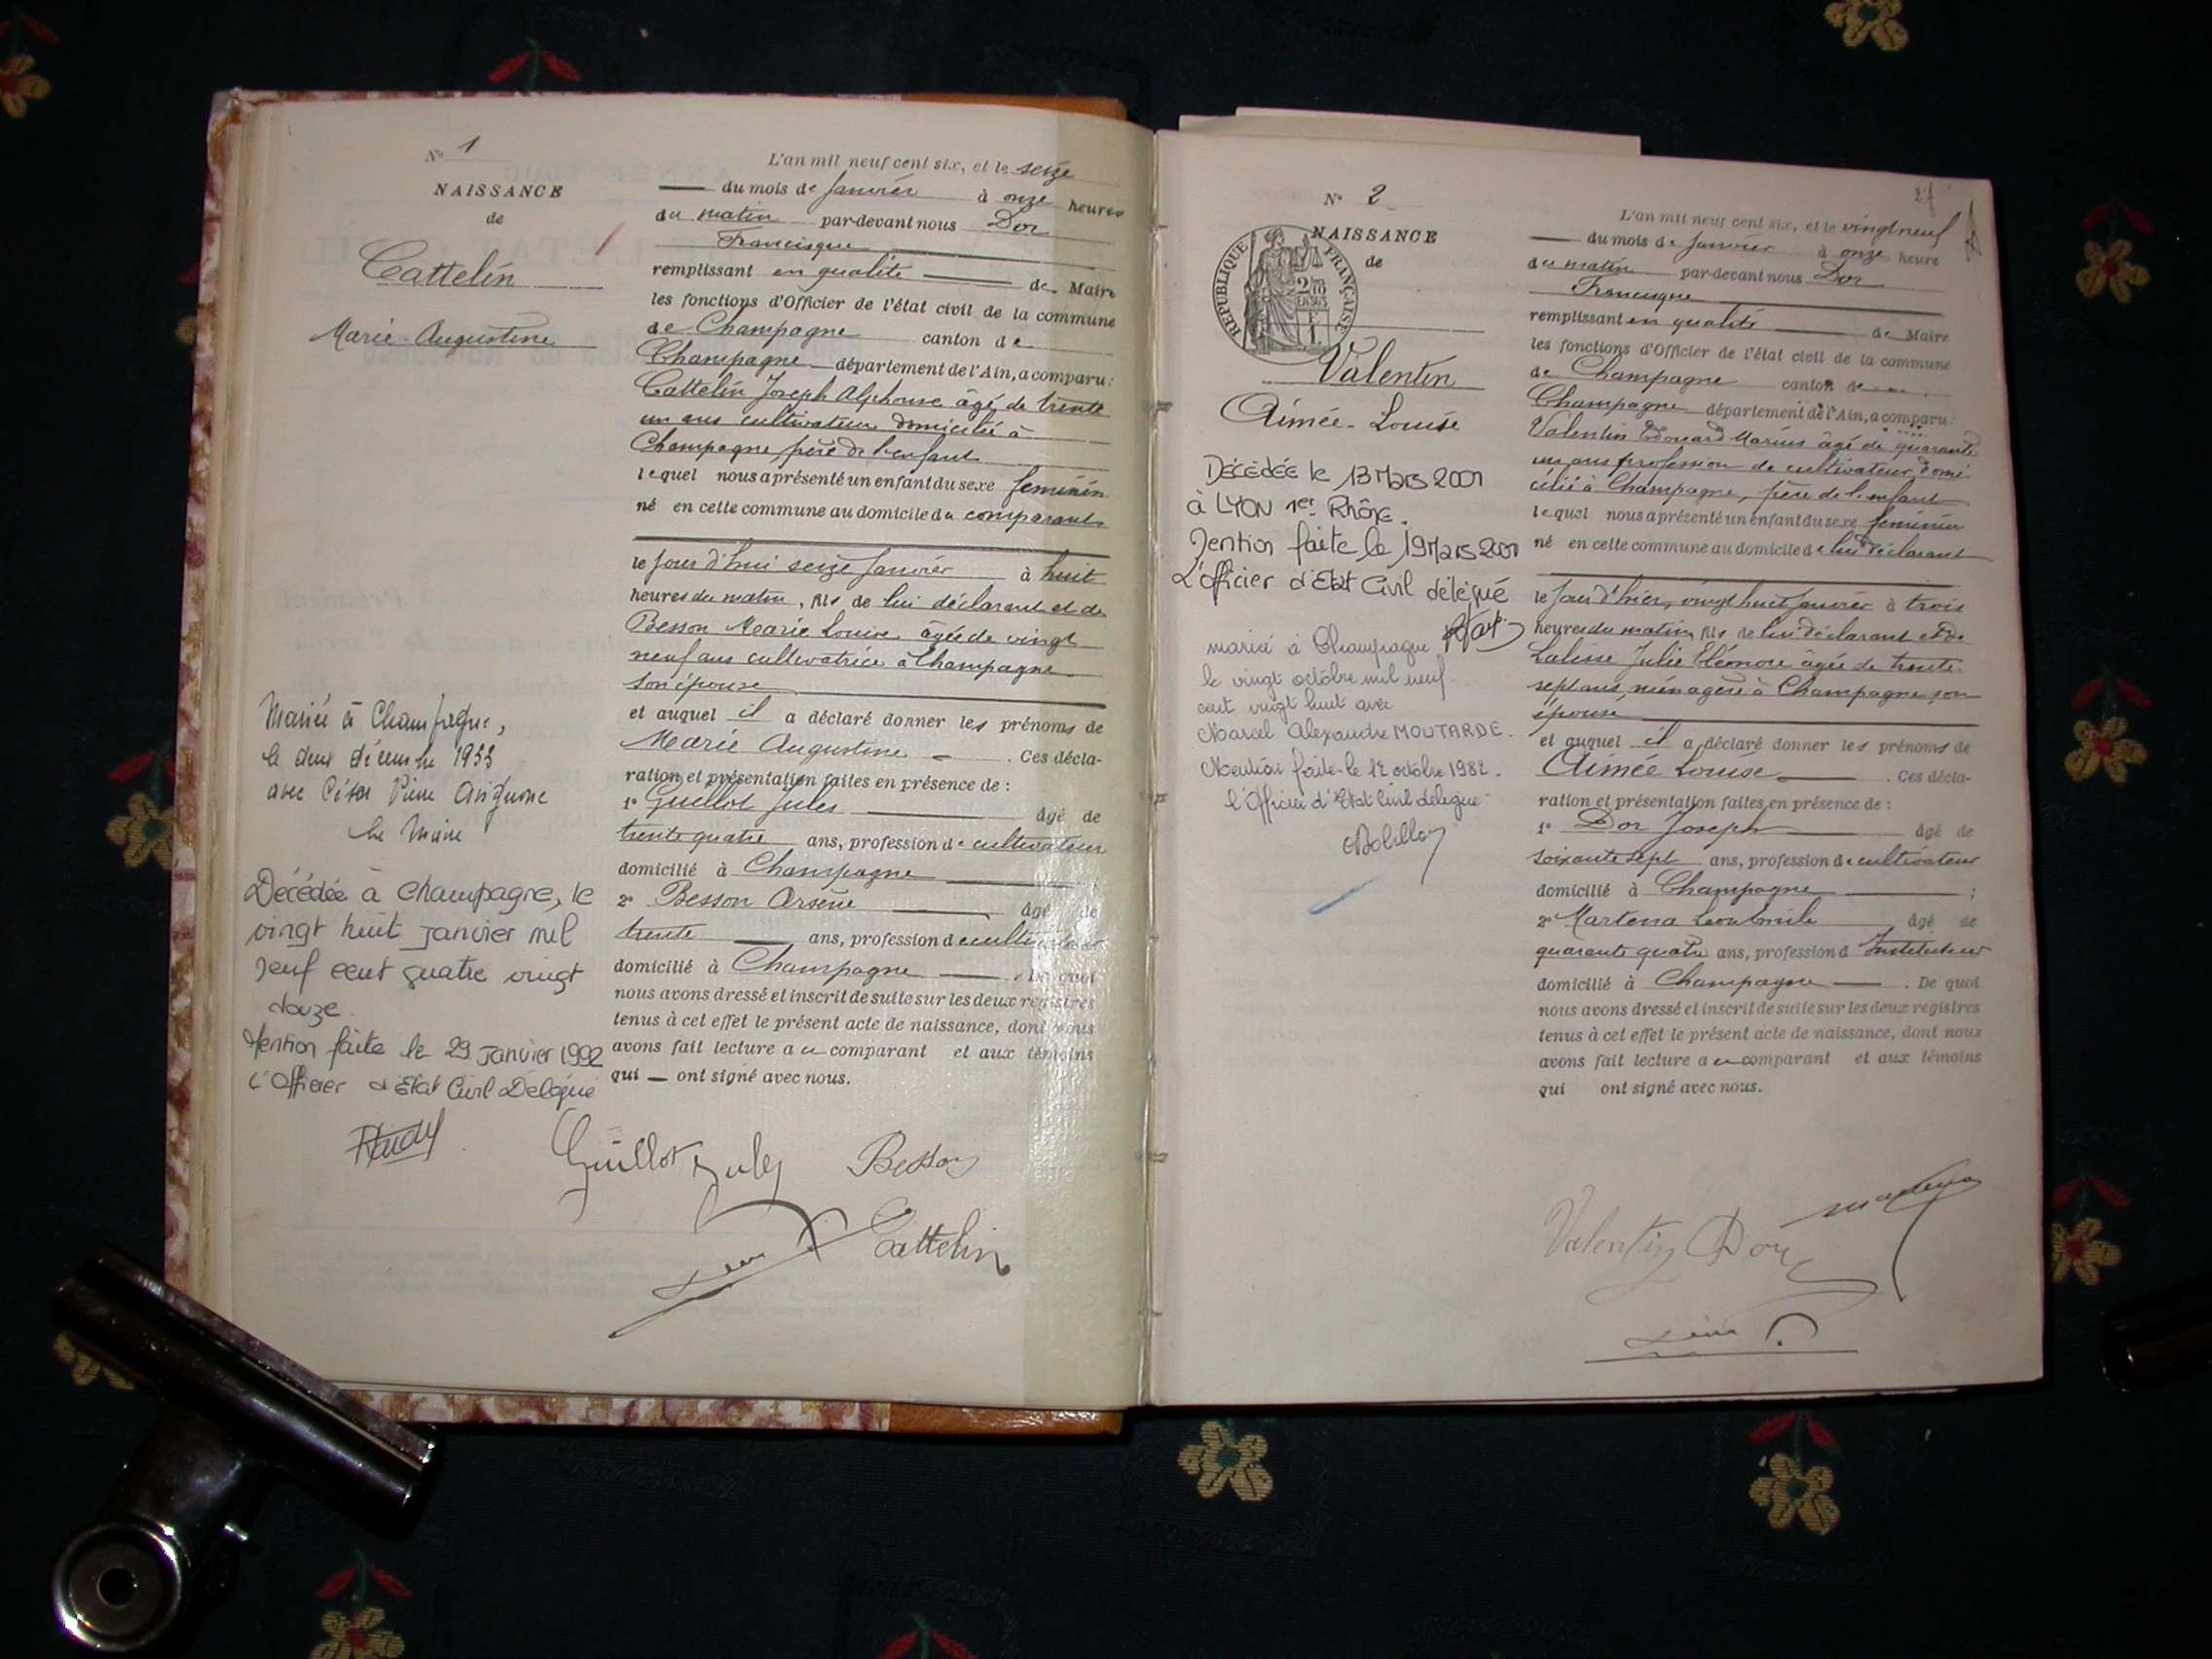 N° 1
NAISSANCE
de
Cattelin
Marie-Augustine
L'an mil neuf cent six, et le seize
du mois de Janvier à onze heures
du matin par-devant nous Dor
Francisque
remplissant en qualité de Maire
les fonctions d'Officier de l'état civil de la commune
de Champagne canton de
Champagne département de l'Ain, a comparu :
Cattelin Joseph Alphonse âgé de trente
un ans cultivateur domicilié à
Champagne père de l'enfant
lequel nous a présenté un enfant du sexe feminin
né en cette commune au domicile du comparant
le jour d'hui seize Janvier à huit
heures du matin, fils de lui déclarant et de
Besson Marie Louise âgée de vingt
neuf ans cultivatrice à Champagne
son épouse
et auquel il a déclaré donner les prénoms de
Marie Augustine. Ces décla-
ration et présentation faites en présence de :
1° Guillot Jules âgé de
trente quatre ans, profession de cultivateur
domicilié à Champagne ;
2° Besson Arsène âgé de
trente ans, profession de cultivateur
domicilié à Champagne. De quoi
nous avons dressé et inscrit de suite sur les deux registres
tenus à cet effet le présent acte de naissance, dont nous
avons fait lecture au comparant et aux témoins
qui ont signé avec nous.
Mariée à Champagne,
le deux décembre 1933
avec César Pierre
Le Maire
Décédée à Champagne, le
vingt huit Janvier mil
neuf cent quatre vingt
douze.
Mention faite le 29 Janvier 1992
L'Officier d'Etat Civil Délégué
Guillot Jules Besson
Cattelin
N° 2
27
NAISSANCE
de
REPUBLIQUE FRANÇAISE
Valentin
Aimée-Louise
Décédée le 13 Mars 2001
à LYON 1er Rhône.
Mention faite le 19 Mars 2001
L'officier d'Etat Civil délégué
mariée à Champagne
le vingt octobre mil neuf
cent vingt huit avec
Marcel Alexandre MOUTARDE.
Mention faite le 12 octobre 1982.
l'Officier d'Etat Civil délégué
L'an mil neuf cent six, et le vingt neuf
du mois de Janvier à onze heure
du matin par-devant nous Dor
Francisque
remplissant en qualité de Maire
les fonctions d'Officier de l'état civil de la commune
de Champagne canton de
Champagne département de l'Ain, a comparu :
Valentin Edouard Marius âgé de quarante
un ans profession de cultivateur domi
cilié à Champagne, père de l'enfant
lequel nous a présenté un enfant du sexe feminin
né en cette commune au domicile de lui déclarant
le jour d'hier, vingt huit Janvier à trois
heures du matin, fils de lui déclarant et de
Lalisse Julie Eléonore âgée de trente
sept ans, ménagère à Champagne son
épouse
et auquel il a déclaré donner les prénoms de
Aimée Louise. Ces décla-
ration et présentation faites en présence de :
1° Dor Joseph âgé de
soixante sept ans, profession de cultivateur
domicilié à Champagne ;
2° Martena âgé de
quarante quatre ans, profession d Instituteur
domicilié à Champagne. De quoi
nous avons dressé et inscrit de suite sur les deux registres
tenus à cet effet le présent acte de naissance, dont nous
avons fait lecture au comparant et aux témoins
qui ont signé avec nous.
Valentin Dor